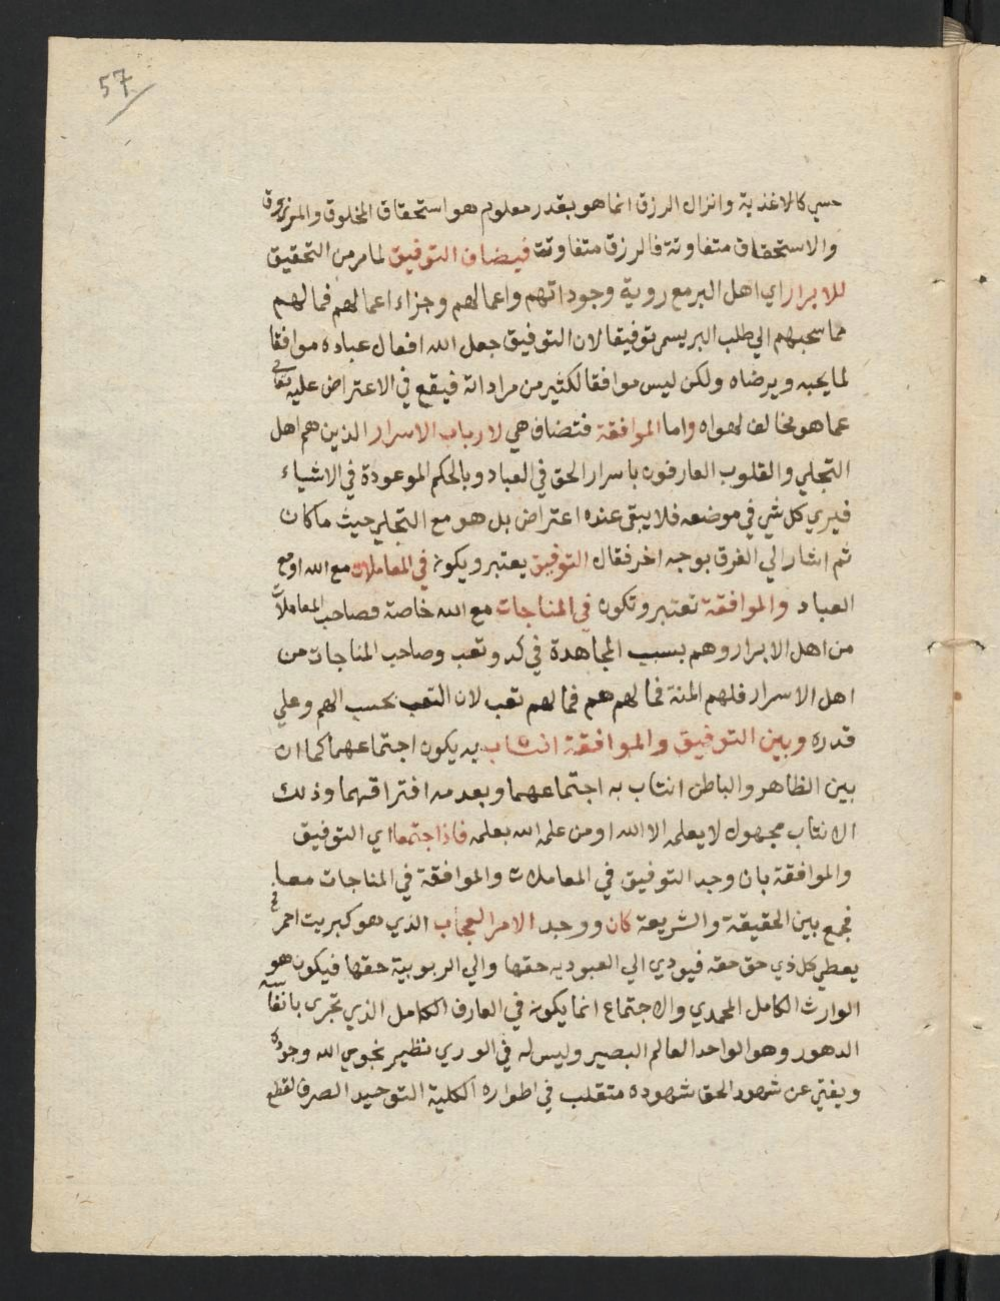 57
حسي كالاغذية وانزال الرزق انما هو بقدر معلوم هو استحقاق المخلوق والمرزوق
والاستحقاق متفاوتة فالرزق متفاوتت فيضاف التوفيق لما مر من التحقيق
للابرار اي اهل البر مع روية وجوداتهم واعمالهم وجزاء اعمالهم فمالهم
مما سحبهم الي طلب البر يسمي توفيقا لان التوفيق جعل الله افعال عباده موافقا
لما يحبه ويرضاه ولكن ليس موافقا لكثير من مراداته فيقع في الاعتراض عليه تعالي
عما هو مخالف لهواه واما الموافقة فتضاف هي لارباب الاسرار الذين هم اهل
التجلي والقلوب العارفون باسرار الحق في العباد وبالحكم الموعودة في الاشياء
فيري كل شي في موضعه فلا يبقي عنده اعتراض بل هو مع التجلي حيث ما كان
ثم اشار الي الفرق بوجه اخر فقال التوفيق يعتبر ويكون في المعاملات مع الله او مع
العباد والموافقة تعتبر وتكون في المناجات مع الله خاصة فصاحب المعاملات
من اهل الابرار وهم بسبب المجاهدة في كد وتعب وصاحب المناجات من
اهل الاسرار فلهم المنة فما لهم هم فما لهم تعب لان التعب بحسب الهم وعلي
قدره وبين التوفيق والموافقة انتساب به يكون اجتماعهما كما ان
بين الظاهر والباطن انتساب به اجتماعهما وبعدمه افتراقهما وذلك
الانتساب مجهول لا يعلمه الا الله او من علمه الله بعلمه فاذا اجتمعا اي التوفيق
والموافقة بان وجد التوفيق في المعاملات والموافقة في المناجات معا
فجمع بين الحقيقة والشريعة كان ووجد الامر العجاب الذي هو كبريت احمر
يعطي كل ذي حق حقه فيودي الي العبوديه حقها والي الربوبية حقها فيكون هو
الوارث الكامل المحمدي والاجتماع انما يكون في العارف الكامل الذي تجري بانفاسه
الدهور وهو الواحد العالم البصير وليس له في الوري نظير وجوده
ويفني عن شهود الحق شهوده متقلب في اطواره الكلية التوحيد الصرف لقطع